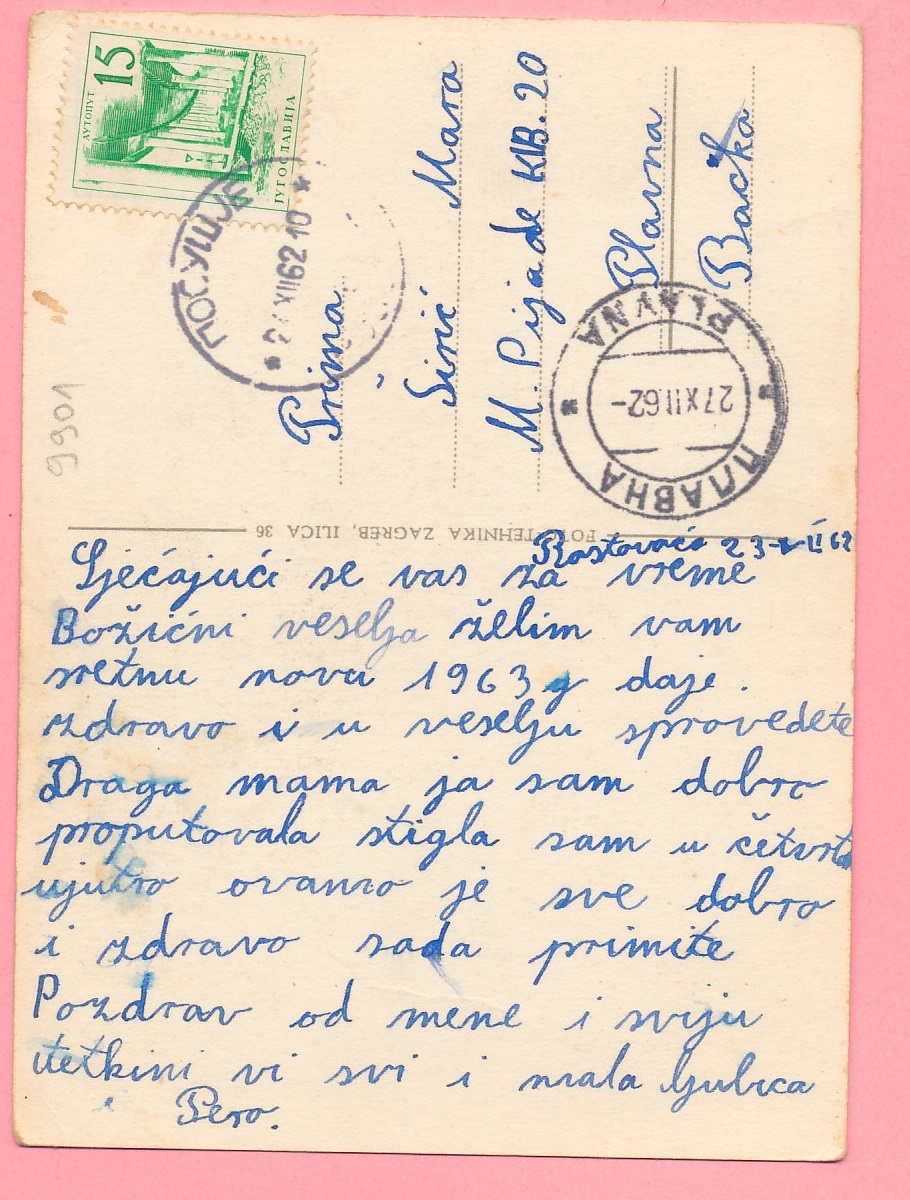 15
АУТОПУТ
ЈУГОСЛАВИЈА
ПОСУШЈЕ
27 XII 62 10
Prima
Širić Mara
M. Pijade KB. 20
Plavna
Bačka
PLAVNA
27 XII 62-
ПЛАВНА
9901
FOTOTEHNIKA ZAGREB, ILICA 36
23 XII 62
Sjećajući se vas za vreme
Božićni veselja želim vam
sretnu novu 1963 g daje.
zdravo i u veselju sprovedete
Draga mama ja sam dobro
proputovala stigla sam u četvrta
ujutro ovamo je sve dobro
i zdravo sada primite
Pozdrav od mene i sviju
tetkini vi svi i mala ljubica
Pero.